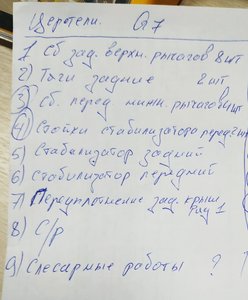 Церетели. Q7
1 Сб зад. верхн. рычагов 8 шт
2) Тяги задние 2 шт
3) Сб. перед. нижн. рычагов
4) Стойки стабилизатора перед 2 шт
5) Стабилизатор задний
6) Стабилизатор передний
7) Переуплотнение зад. крыш
ряд 1
8) С/р
9) Слесарные работы ?